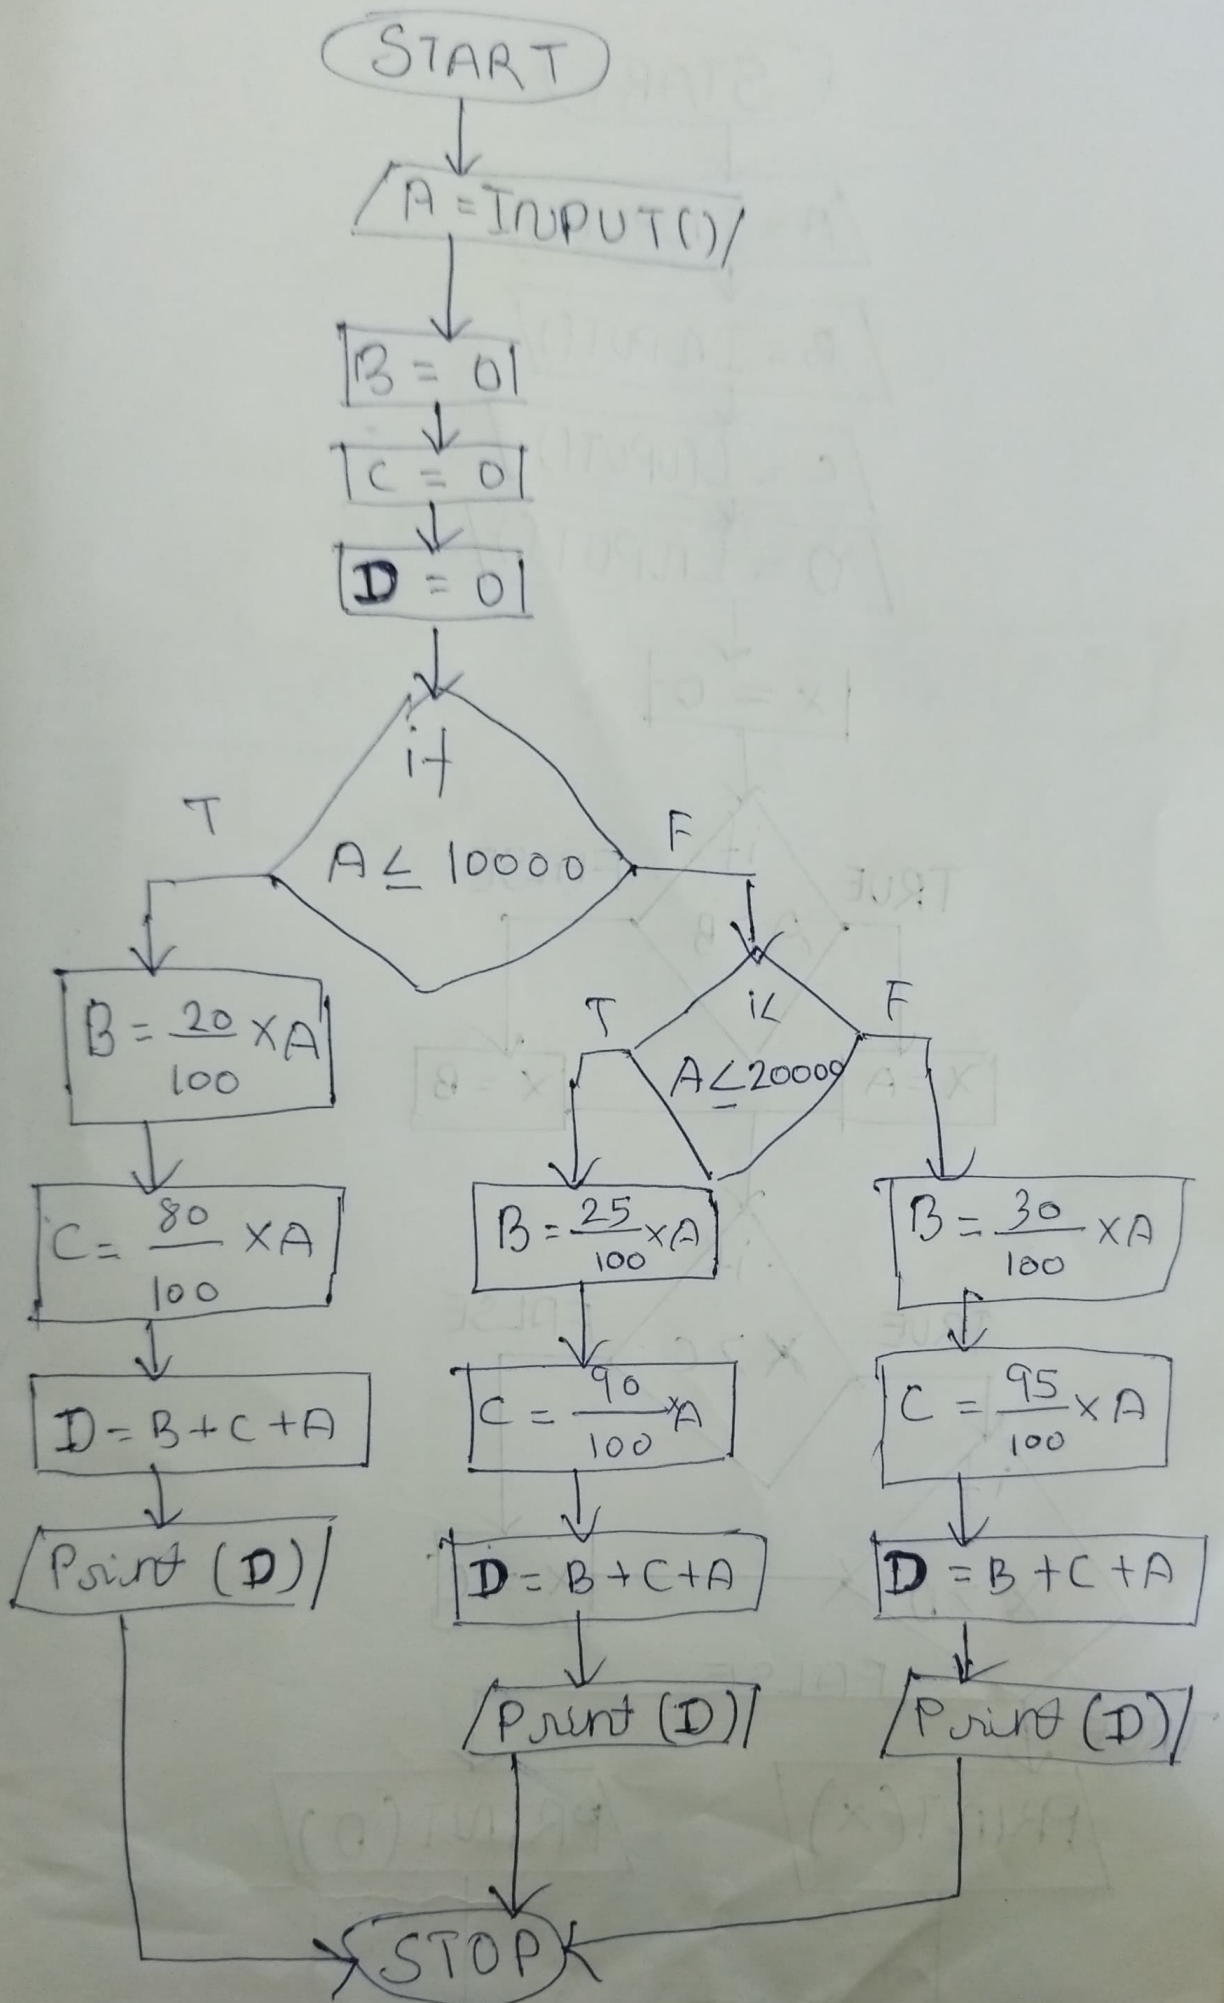 START
A = INPUT()
B = 0
C = 0
D = 0
if
A ≤ 10000
T
F
B = 20/100 × A
C = 80/100 × A
D = B + C + A
Print (D)
if
A ≤ 20000
T
F
B = 25/100 × A
C = 90/100 × A
D = B + C + A
Print (D)
B = 30/100 × A
C = 95/100 × A
D = B + C + A
Print (D)
STOP